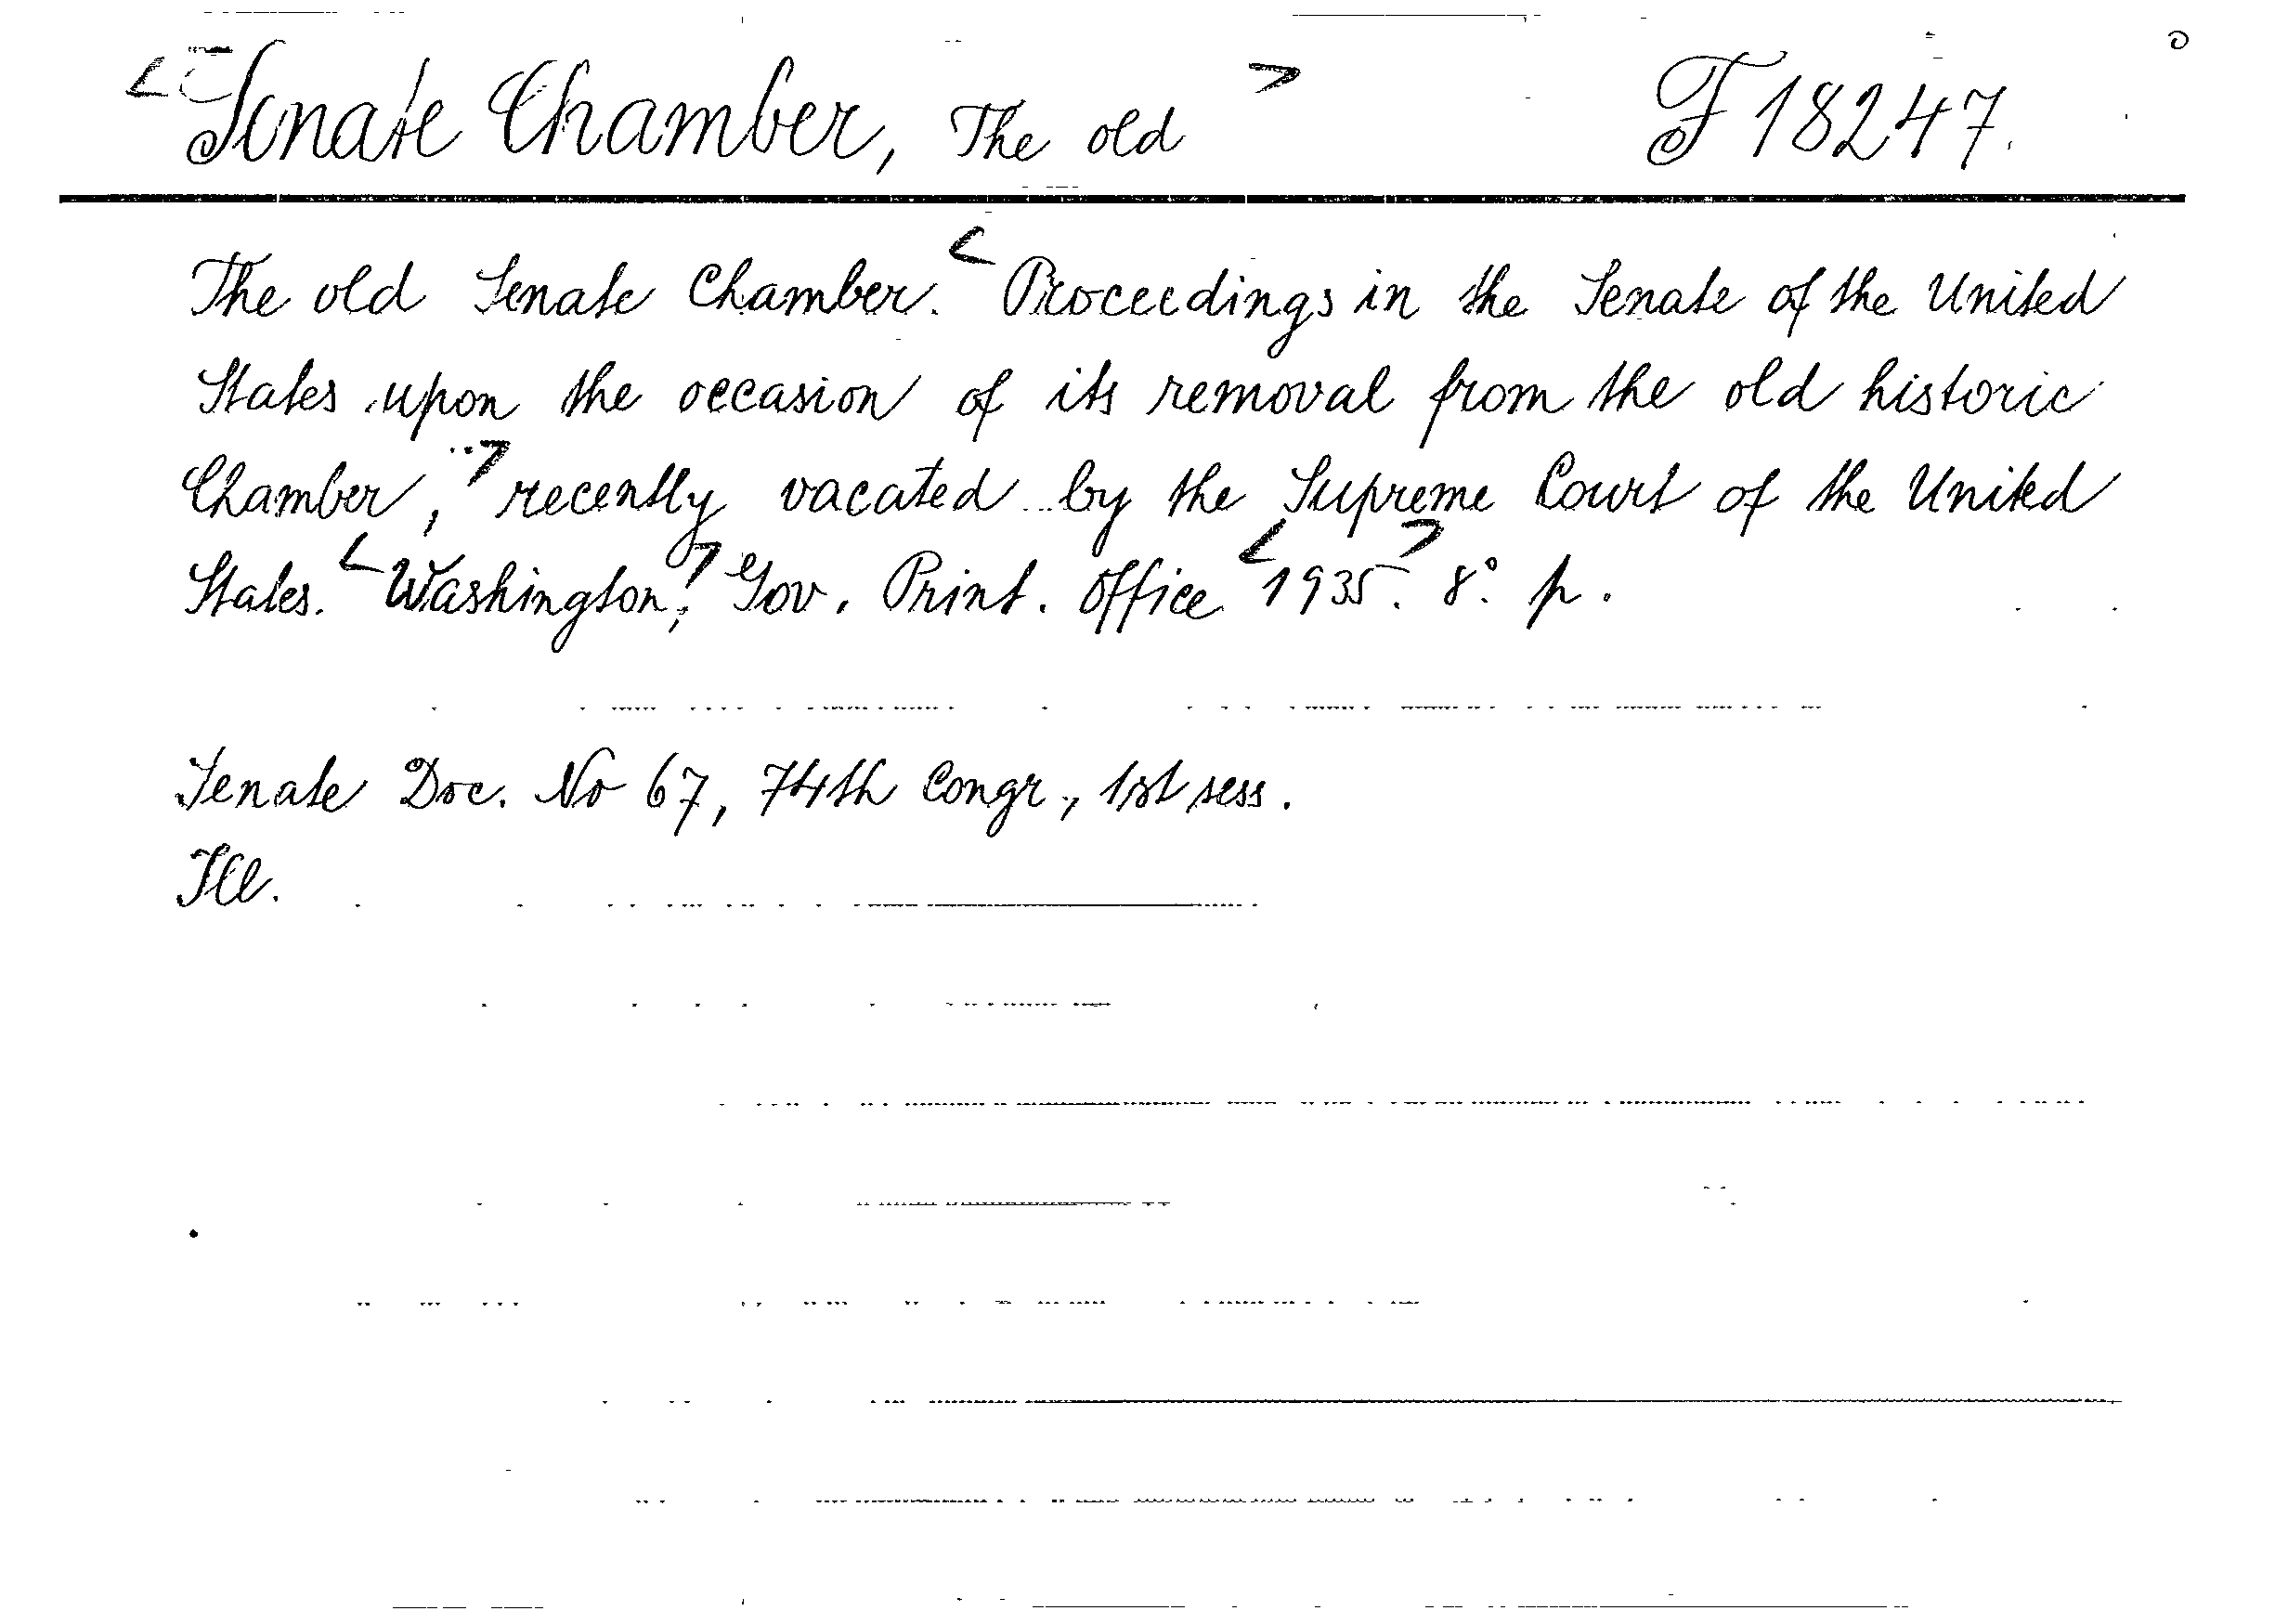 <Senate Chamber, The old> F 18247.
The old Senate Chamber. <Proceedings in the Senate of the United
States upon the occasion of its removal from the old historic
Chamber,> recently vacated by the Supreme Court of the United
States. <Washington,> Gov. Print. Office <1935.> 8° p.
Senate Doc. No 67, 74th Congr., 1st sess.
Ill.